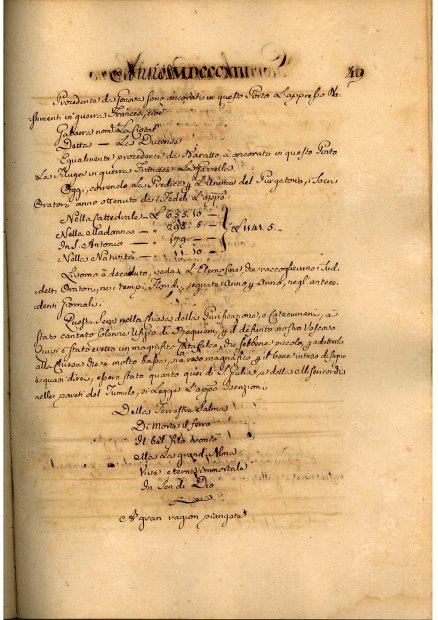 Anno MDCCCXIII
49
Procedente da Genova sono ancorati in questo Porto l'appresso
stimenti in guerra Francesi, cioè
Gabarra nom.
Detta — La
Equalmente procedente da Taranto è ancorato in questo Porto
La Fluga in guerra Francese La
Oggi, correndo la Predica dell'Anime del Purgatorio, i Sacri
Oratori anno ottenuto da i Fedeli l'appo
Nella Cattedrale — £ 635. 10 —
Nella Madonna — " 298. 5 —
In S. Antonio — " 179 — —
Nella Natività — " 11. 10 —
£ 1141. 5 —
L'uomo è decaduto, veda le Elemosine, che raccoglievano i Sud.
detti Oratori, ne i tempi, floridi, segnate Anno p Anno, negl'antece
denti Giornali.
Questa Sera nella Chiesa della Purificazione, o Catecumeni, è
stato cantato solenne Ufizio di Requiem, p il defunto nostro Vescovo
è stato eretto un magnifico Catafalco, che sebbene piccolo, p adattarlo
alla Chiesa che è molto bassa, si è reso magnifico, p il bene inteso
e quasi direi, opera stato quanto quei di S. Giulia, e della Misericordia
nelle pareti del Tumulo, si legge l'appo Iscrizion
Della Terrestre Salma
Di Morte il ferro
Il bel filo troncò
Ella la grand'Alma
Vive eterna immortale
In Sen di Dio
A gran ragion piangete